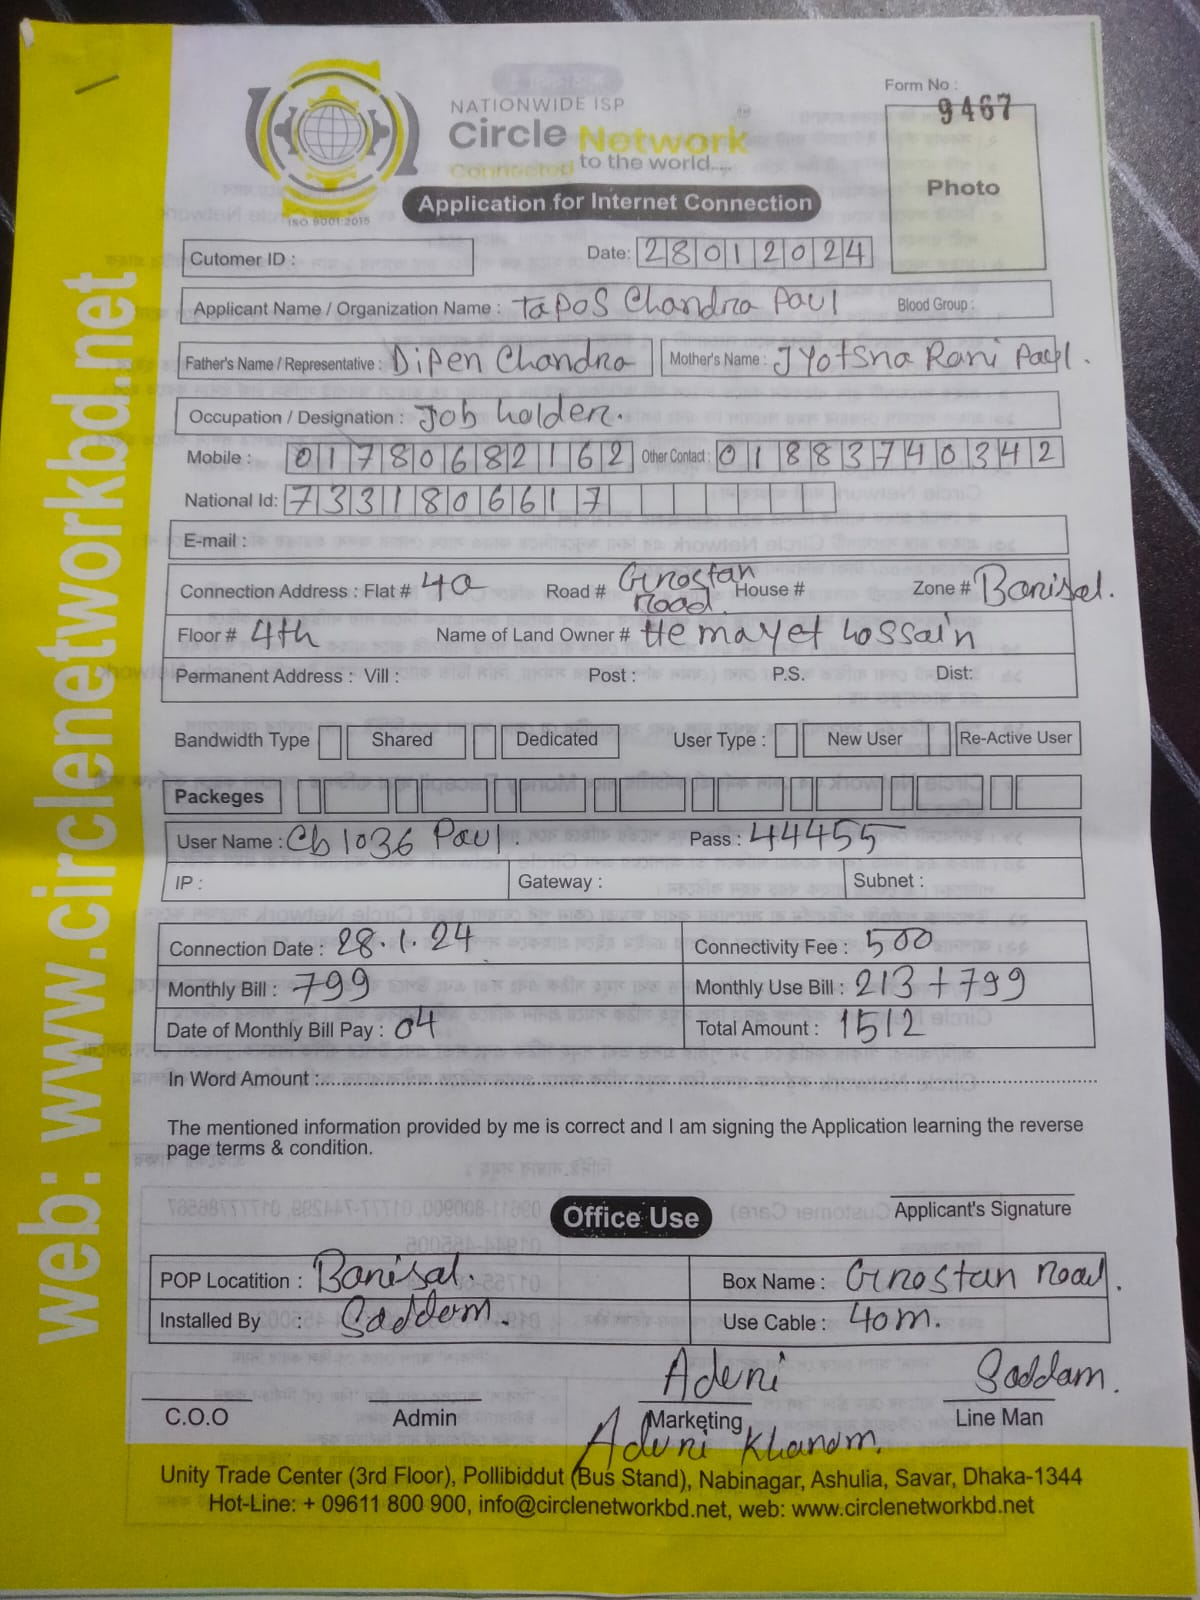 Form No :
9467
NATIONWIDE ISP
Circle Network
Connected to the world....
ISO 9001:2015
Photo
Application for Internet Connection
Cutomer ID :
Date: 28012024
Applicant Name / Organization Name : Tapos Chandra Paul Blood Group :
Father's Name / Representative : Dipen Chandra Mother's Name : Jyotsna Rani Paul.
Occupation / Designation : Job holder.
Mobile : 01780682162 Other Contact : 01883740342
National Id: 7331806617
E-mail :
Connection Address : Flat # 4a Road # Girostan Road House # Zone # Barisal.
Floor # 4th Name of Land Owner # Hemayet Hossain
Permanent Address : Vill : Post : P.S. Dist:
Bandwidth Type Shared Dedicated User Type : New User Re-Active User
Packeges
User Name : Cb1036 Paul. Pass : 44455
IP : Gateway : Subnet :
Connection Date : 28.1.24 Connectivity Fee : 500
Monthly Bill : 799 Monthly Use Bill : 213 + 799
Date of Monthly Bill Pay : 04 Total Amount : 1512
In Word Amount :
The mentioned information provided by me is correct and I am signing the Application learning the reverse
page terms & condition.
Applicant's Signature
Office Use
POP Locatition : Barisal. Box Name : Girostan Road.
Installed By : Saddam. Use Cable : 40m.
Aduri Saddam.
C.O.O Admin Marketing Line Man
Aduri Khanam.
Unity Trade Center (3rd Floor), Pollibiddut (Bus Stand), Nabinagar, Ashulia, Savar, Dhaka-1344
Hot-Line: + 09611 800 900, info@circlenetworkbd.net, web: www.circlenetworkbd.net
web: www.circlenetworkbd.net